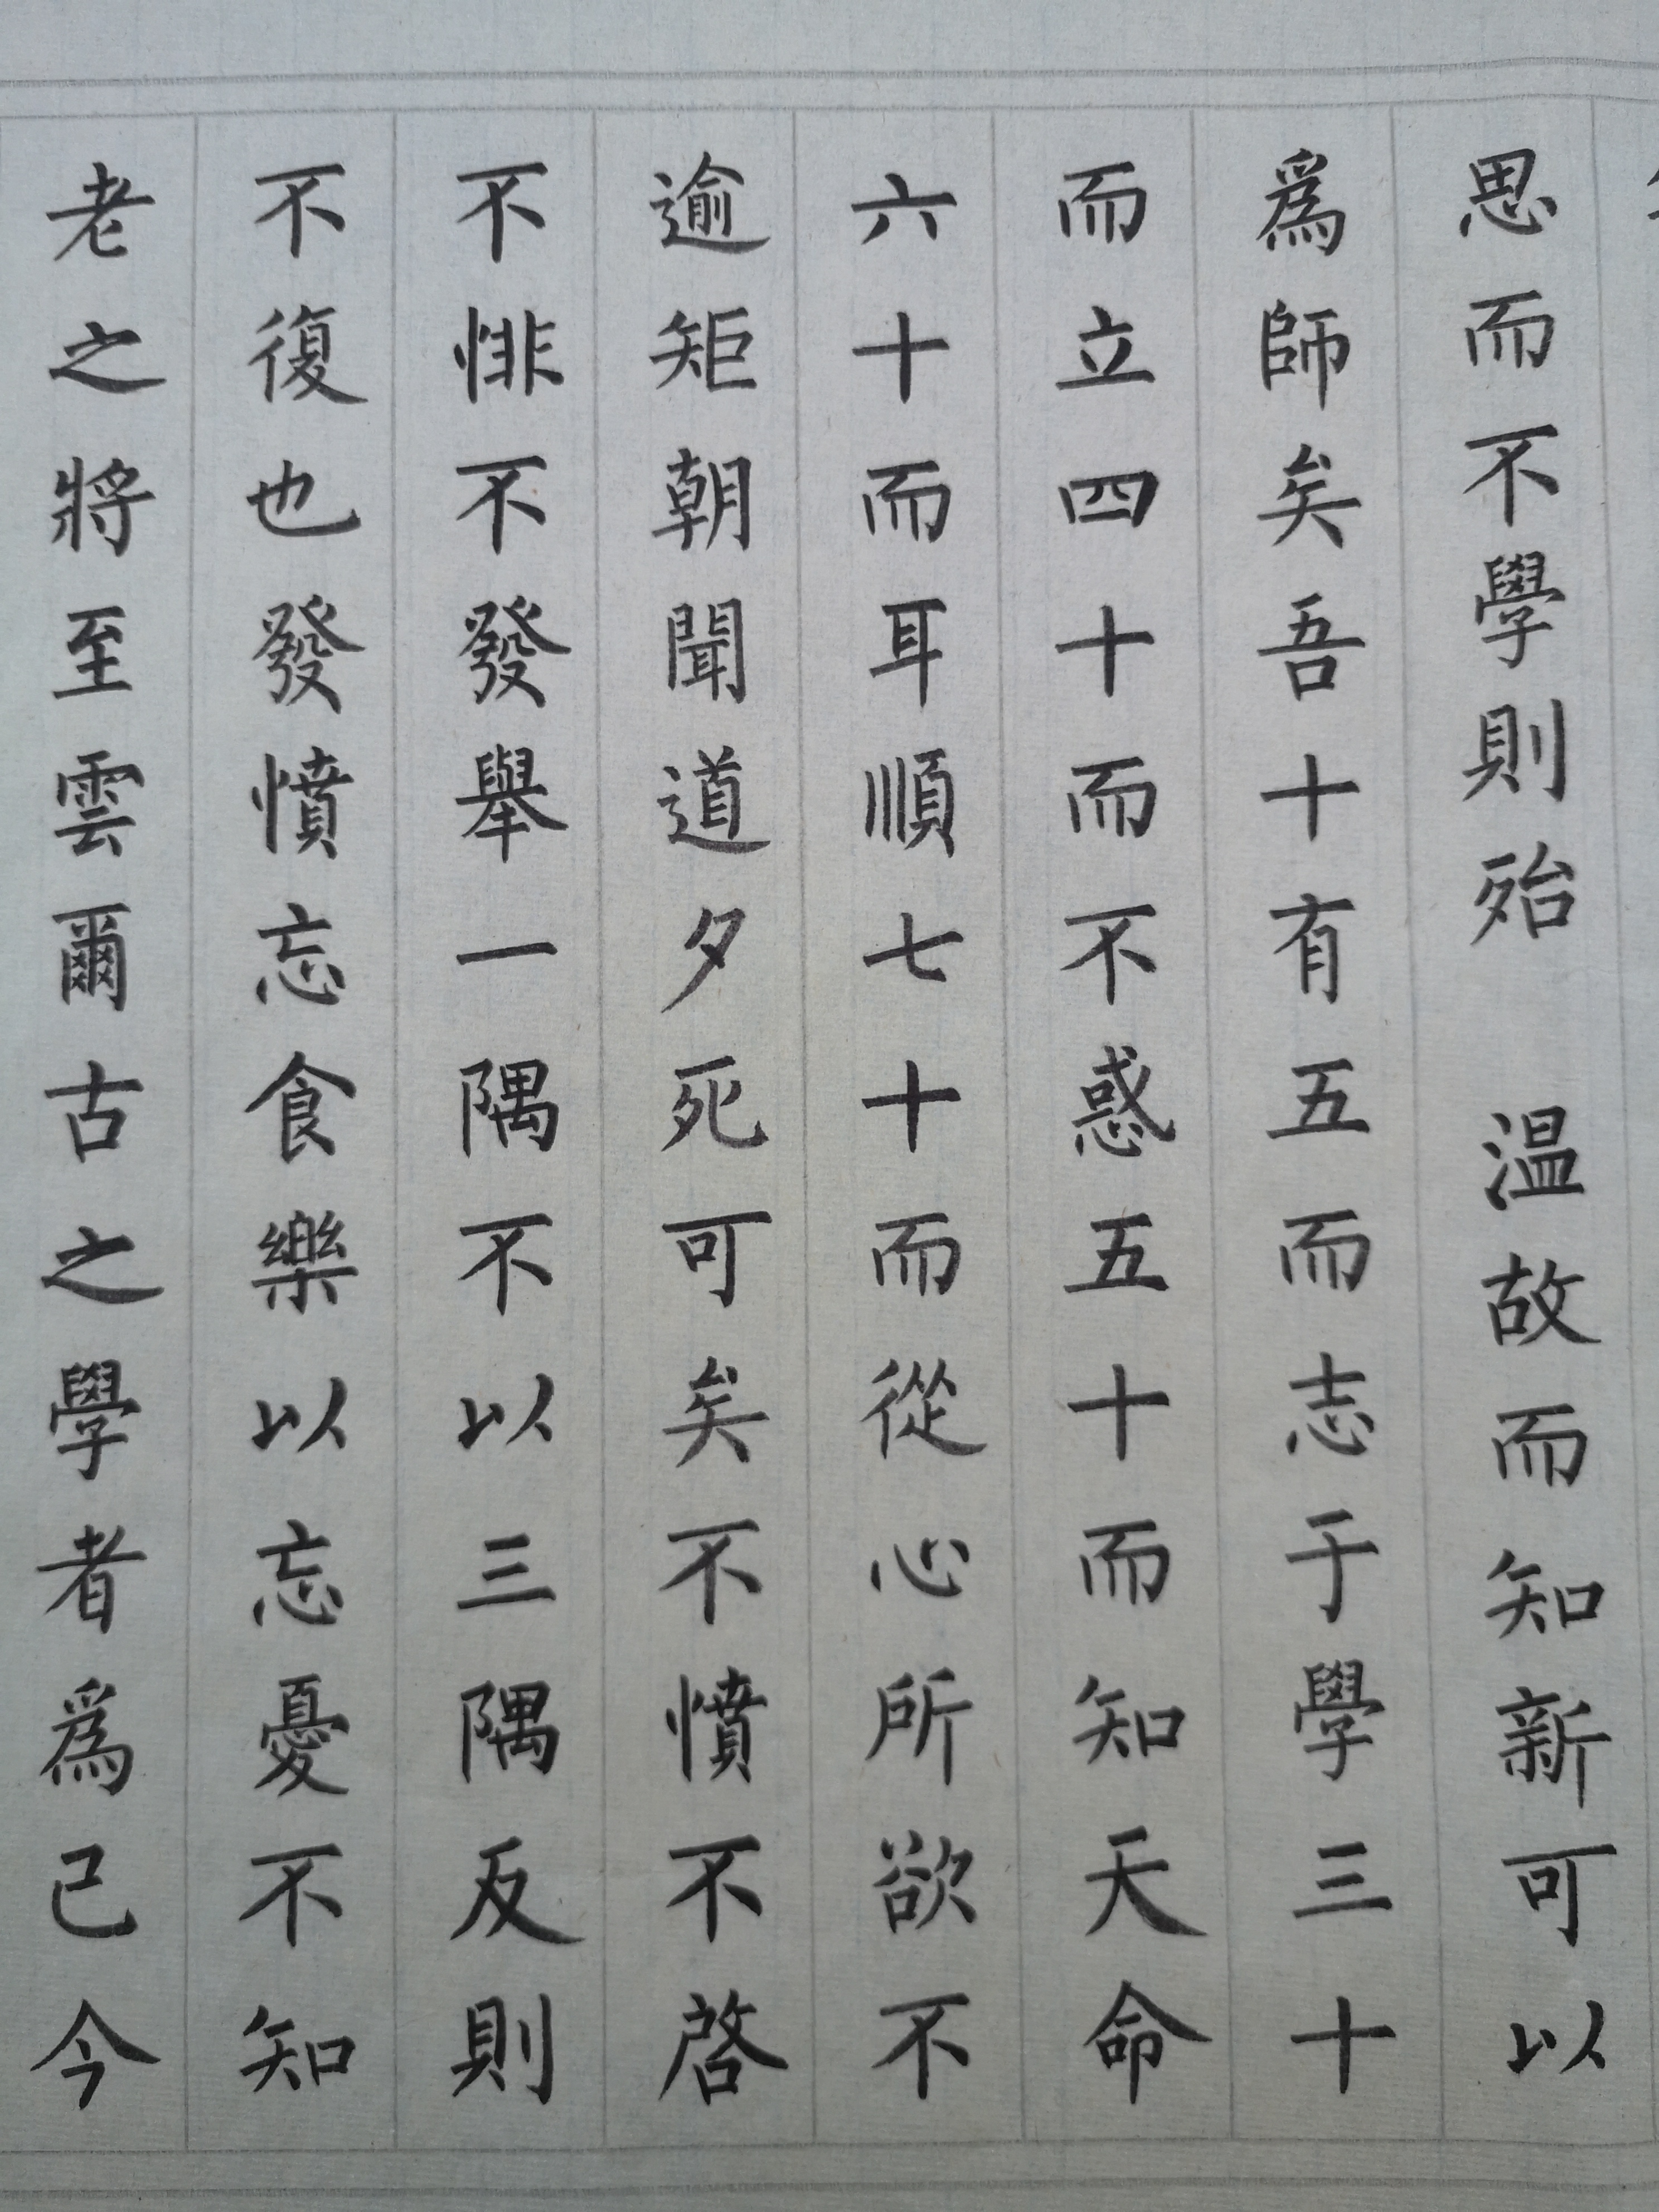 思而不學則殆 温故而知新可以
爲師矣吾十有五而志于學三十
而立四十而不惑五十而知天命
六十而耳順七十而從心所欲不
逾矩朝聞道夕死可矣不憤不啓
不悱不發舉一隅不以三隅反則
不復也發憤忘食樂以忘憂不知
老之將至雲爾古之學者爲己今